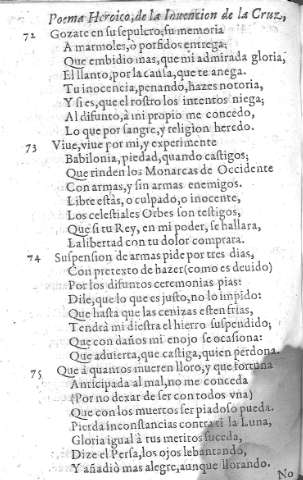 Poema Heroico, de la Inuencion de la Cruz,
72 Gozate en su sepulcro; su memoria
A marmoles, o porfidos entrega;
Que embidio mas, que mi admirada gloria,
El llanto, por la causa, que te anega.
Tu inocencia, penando, hazes notoria,
Y si es, que el rostro los intentos niega;
Al difunto, à mi propio me concedo,
Lo que por sangre, y religion heredo.
73 Viue, viue por mi, y experimente
Babilonia, piedad, quando castigos;
Que rinden los Monarcas de Occidente
Con armas, y sin armas enemigos.
Libre estàs, o culpado, o inocente,
Los celestiales Orbes son testigos,
Que si tu Rey, en mi poder, se hallara,
La libertad con tu dolor comprara.
74 Suspension de armas pide por tres dias,
Con pretexto de hazer (como es deuido)
Por los difuntos ceremonias pias:
Dile, que lo que es justo, no lo impido:
Que hasta que las cenizas esten frias,
Tendrà mi diestra el hierro suspendido;
Que con daños mi enojo se ocasiona:
Que aduierta, que castiga, quien perdona.
75 Que à quantos mueren lloro, y que fortuna
Anticipada al mal, no me conceda
(Por no dexar de ser con todos vna)
Que con los muertos ser piadoso pueda.
Pierda inconstancias contra ti la Luna,
Gloria igual à tus meritos suceda,
Dize el Persa, los ojos lebantando,
Y añadiò mas alegre, aunque llorando.
No